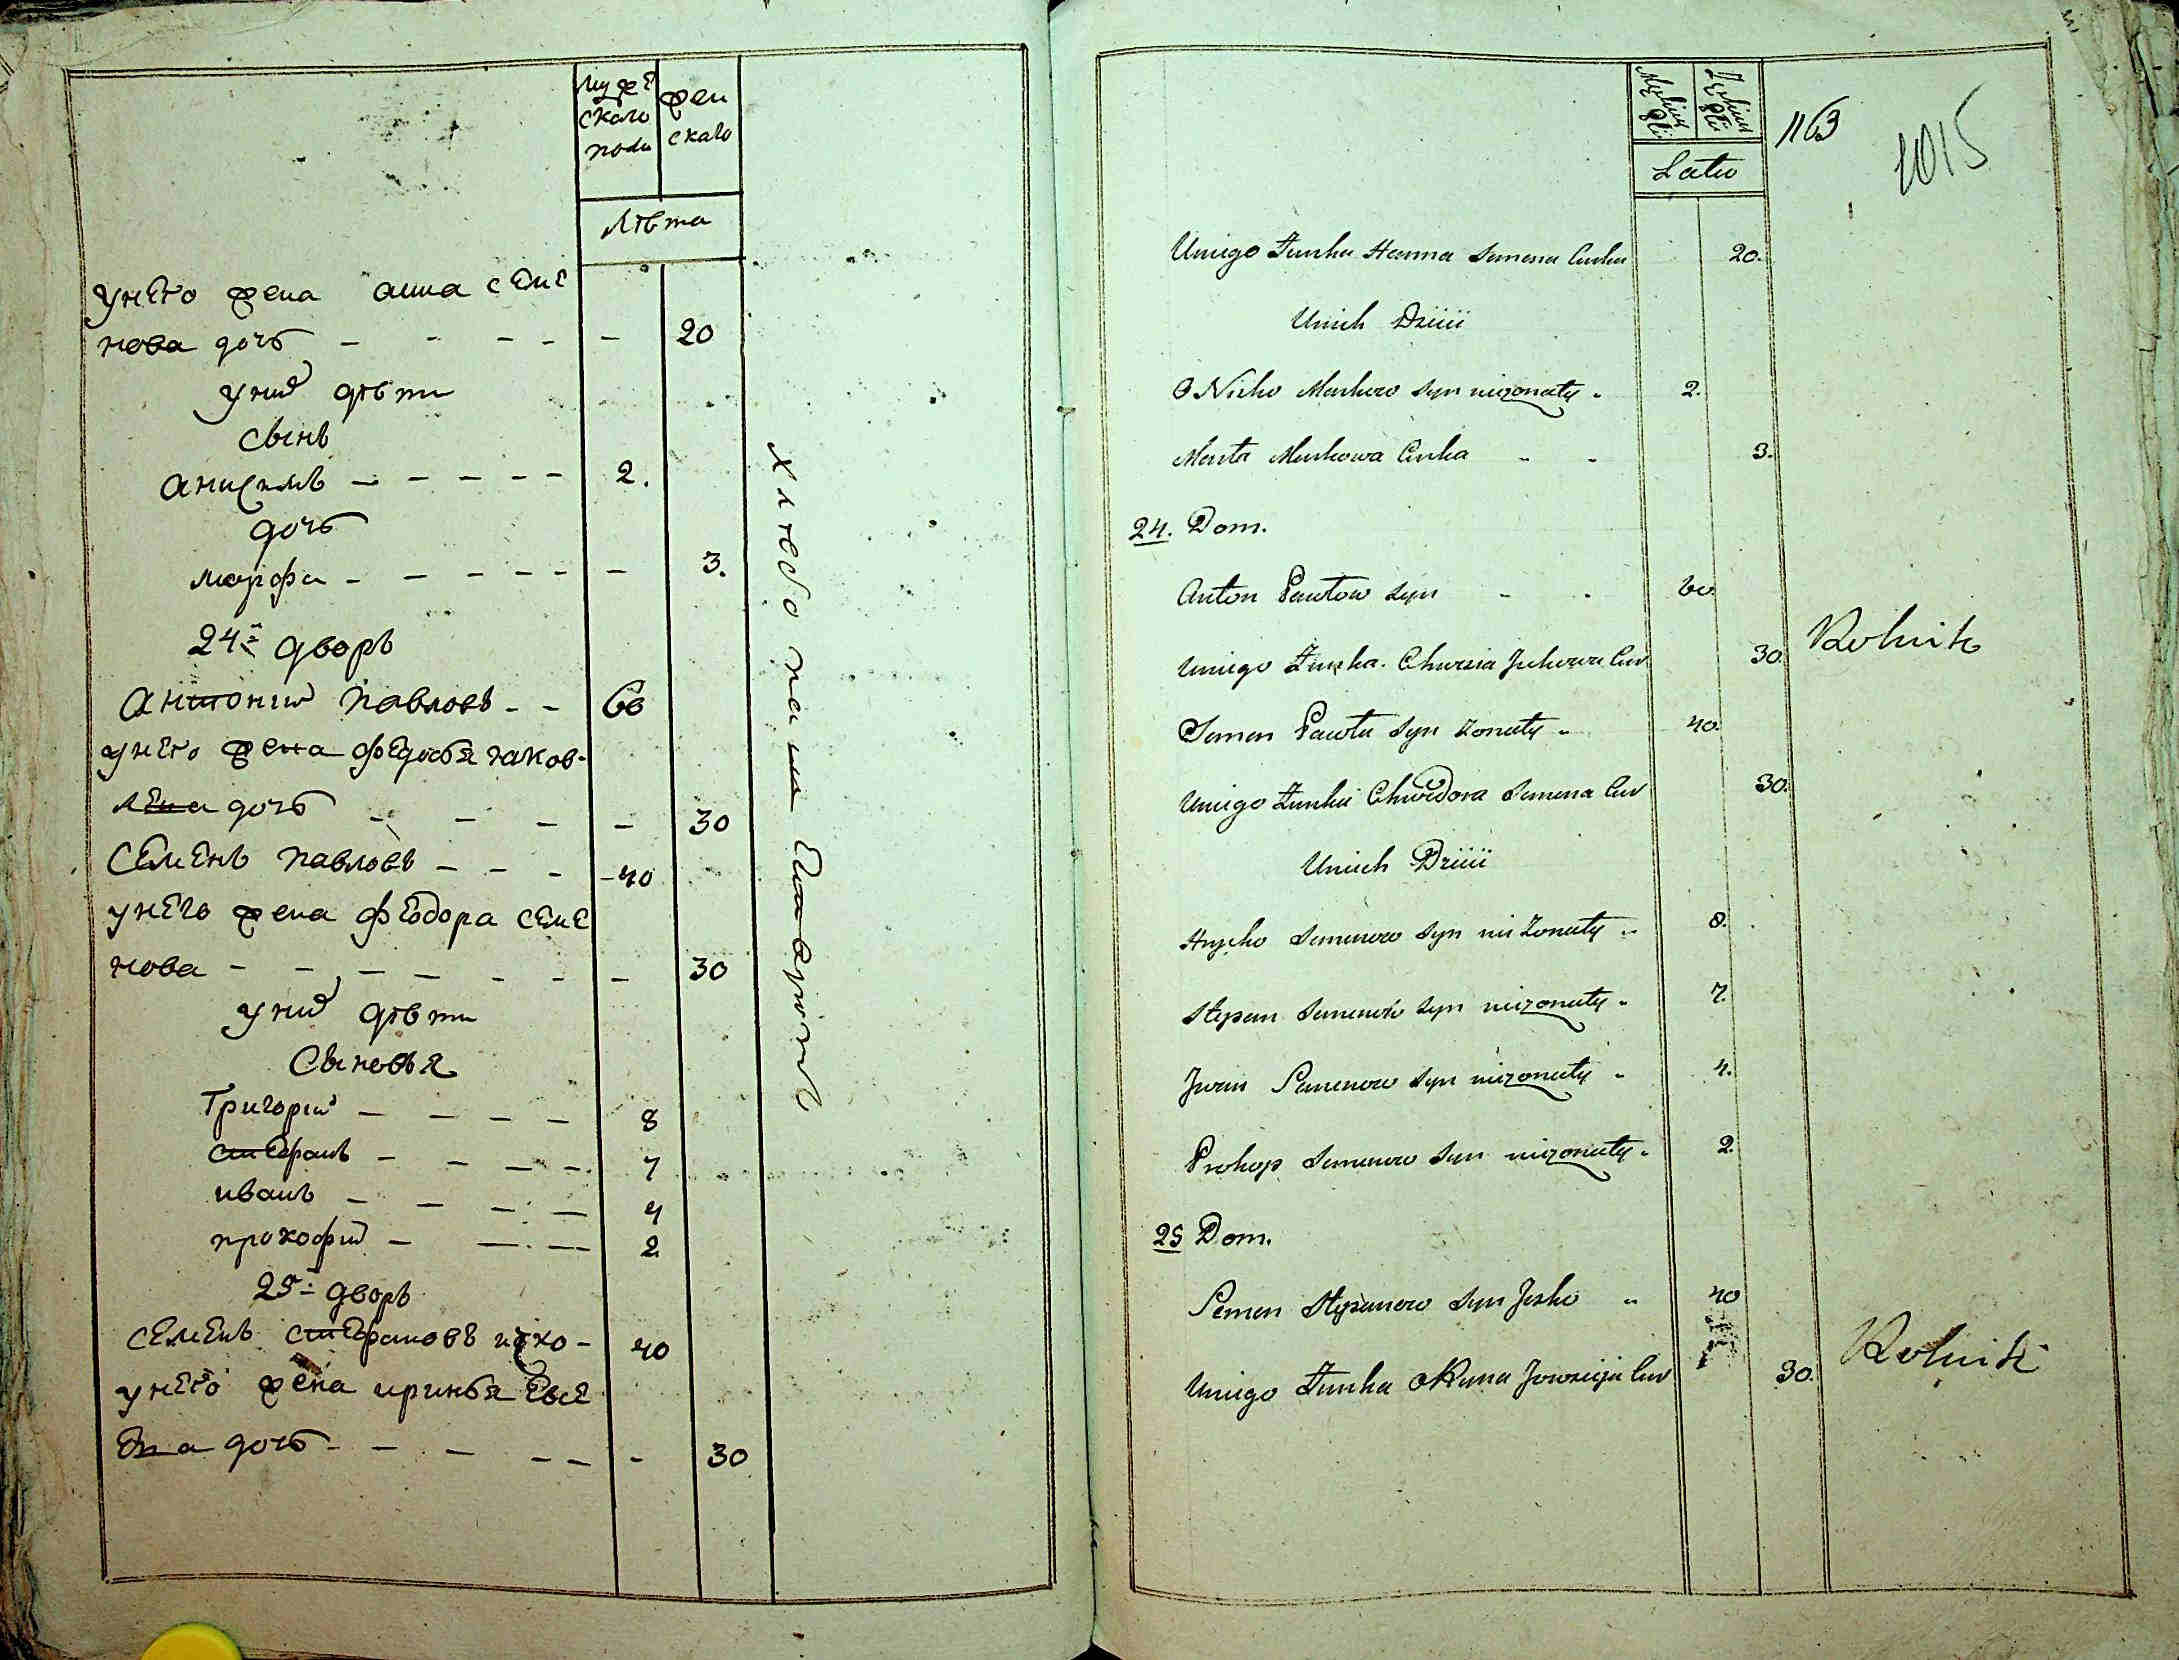 муже
ского
полu
жен
скаго
Лѣта
унего жена анна семе
нова дочь 20
уних дѣти
сынъ
анисимъ 2.
дочь
марфа 3.
24й дворъ
антонии павловъ 60
унего жена федосья яков-
лена дочь 30
Семенъ павловъ 40
унего жена феодора семе
нова 30
уних дѣти
Сыновья
Григории 8
стефанъ 7
иванъ 4
прокофии 2
25й дворъ
семенъ стефановъ 40
унего жена иринья Евсе
ева дочь 30
хлебопашецъ
1163
1015
Latu
Uniego Zunka Hanna Semena Curka 20.
Unich Dziti
ONisko Markow syn niezonaty 2.
Marta Markowa Curka 3.
24. Dom.
Anton Pawłow syn 60
Uniego Zunka Chwesia Jakowa Cur 30.
Rolnik
Semen Pawła syn zonaty 40.
Uniego Zunka Chwedora Semena Cur 30.
Unich Dziti
Hryćko Semenow syn nie zonaty 8.
Stepan Semenow syn niezonaty 7.
Iwan Semenow syn niezonaty 4.
Prokop Semenow syn niezonaty 2.
25 Dom.
Semen Stepanow syn 40
Uniego Zunka Cur 30.
Rolnik